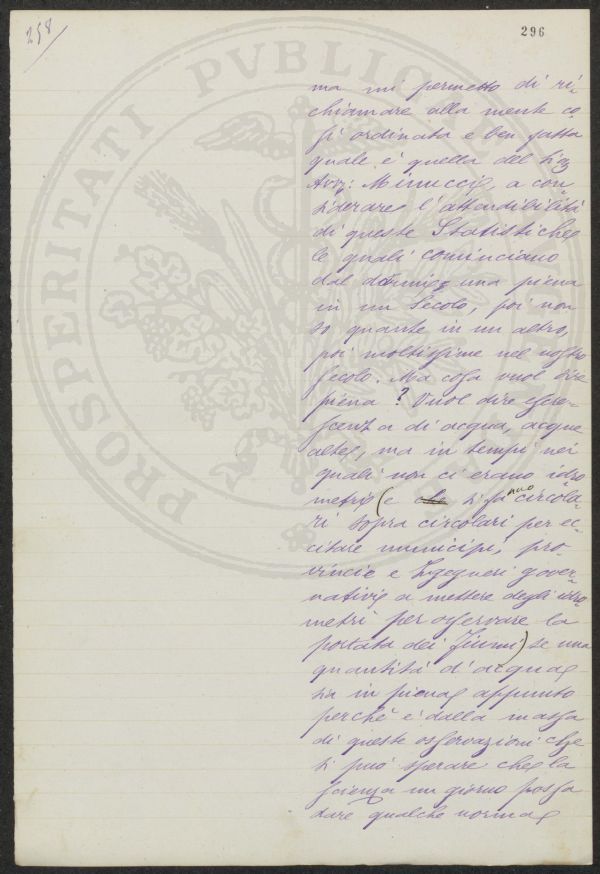 258
296
PROSPERITATI PVBLICAE
ma mi permetto di ri-
chiamare alla mente co-
sì ordinata e ben fatta
quale è quella del Sig
Avv: Minucci, a con-
siderare l'attendibilità
di queste Statistiche
le quali cominciano
dal darmi una piena
in un Secolo, poi non
so quante in un altro,
poi moltissime nel nostro
secolo. Ma cosa vuol dire
piena? Vuol dire escre-
scenza di acqua, acque
alte, ma in tempi nei
quali non ci erano idro
metri (e che si fanno circola-
ri sopra circolari per ec-
citare municipi, pro-
vincie e Ingegneri gover-
nativi a mettere degli idro-
metri per osservare la
portata dei fiumi) se una
quantità d'acqua
sia in piena appunto
perchè è dalla massa
di queste osservazioni che
si può sperare che la
scienza un giorno possa
dare qualche norma